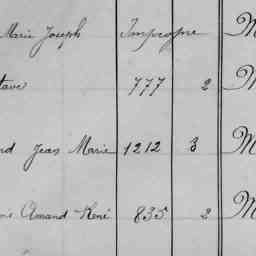 Marie Joseph Impropre M
tave 777 2 M
nd Jean Marie 1212 3 M
Amand René 835 2 M